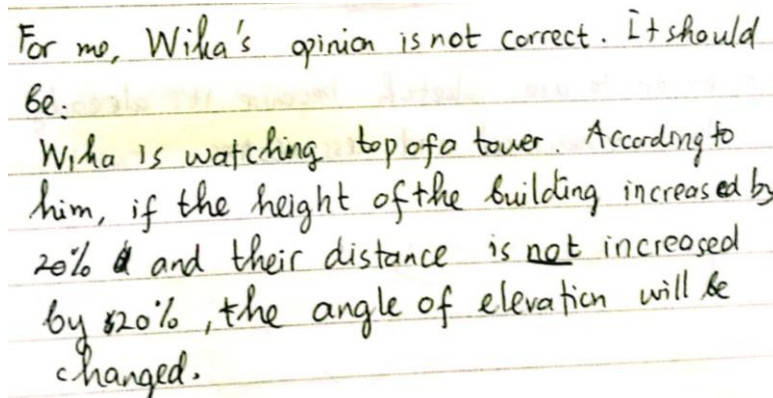 For me, Wika's opinion is not correct. It should
be:
Wika is watching top of a tower. According to
him, if the height of the building increased by
20% and their distance is not increased
by 20%, the angle of elevation will be
changed.